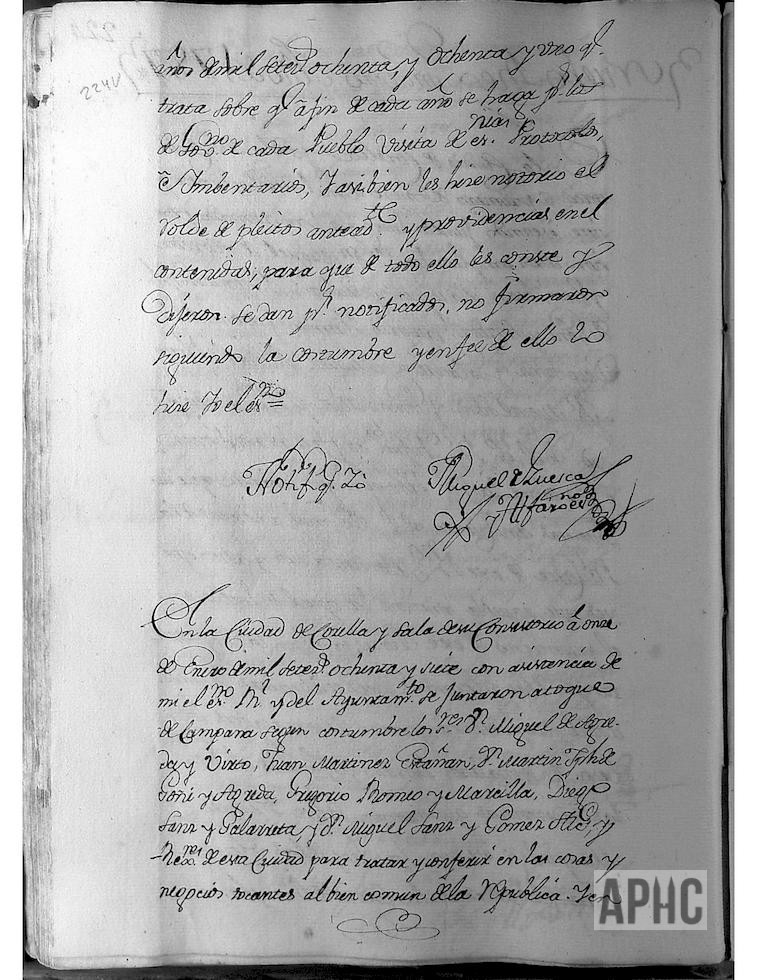 224v
años de mil setec.s ochenta, y ochenta y uno q.e
trata sobre q.e a fin de cada año se haga p.r los
de cada Pueblo Visita de es.nias Protocolos,
e Imbentarios, Y asi bien les hize notorio el
Rolde de pleitos antecd.te y providencias en el
contenidas, para que de todo ello les conste y
dijeron se dan p.r notificados, no firmaron
siguiendo la costumbre y en fee de ello lo
hize Yo el es.no =
Notifiq.e Yo
Miguel de Luesca
y Alfaro es.no
En la Ciudad de Corella y Sala de su Consistorio a once
de Enero de mil setec.s ochenta y siete con asistencia de
mi el es.no R.l y del Ayuntam.to se juntaron a toque
de Campana segun costumbre los S.res D.n Miguel de Agre-
da y Virto, Juan Martinez Estañan, D.n Martin Jph de
Goñi y Agreda, Gregorio Romeo y Marcilla, Diego
Sanz y Galarreta, y D.n Miguel Sanz y Gomez Alc.e y
Rex.res de esta Ciudad para tratar y conferir en las cosas y
negocios tocantes al bien comun de la Republica. Y en
APHC